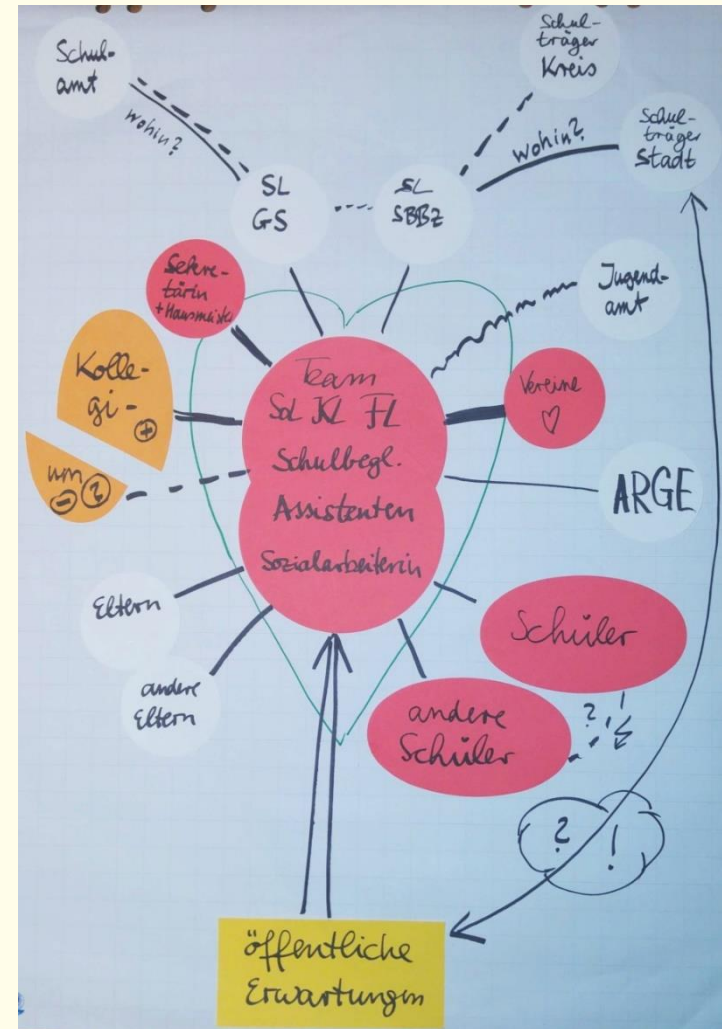 Schul-
amt
Schul-
träger
Kreis
wohin?
wohin?
Schul-
träger
Stadt
SL
GS
SL
SBBZ
Sekre-
tärin
+Hausmeister
Jugend-
amt
Kolle-
gi-
+
um
- ?
Team
KL FL
Schulbegl.
Assistenten
Sozialarbeiterin
Vereine
♡
ARGE
Eltern
andere
Eltern
Schüler
andere
Schüler
?
? !
öffentliche
Erwartungen